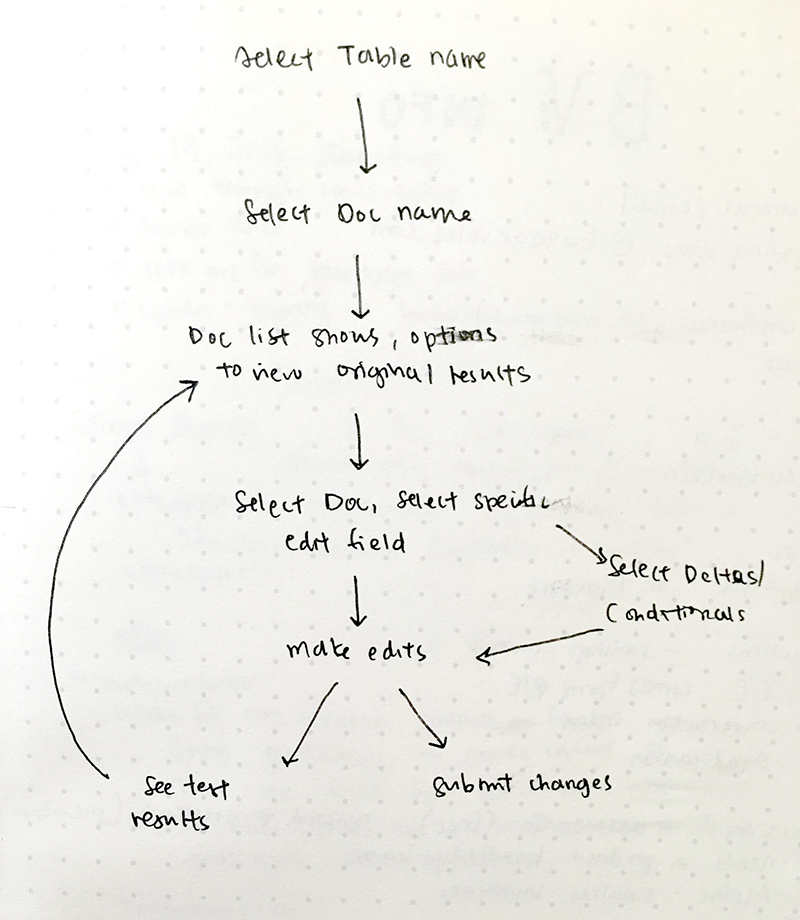 Select Table name
Select Doc name
Doc list shows, options
to view original results
Select Doc, select specific
edit field
Select Deltas/
Conditionals
make edits
See test
results
submit changes